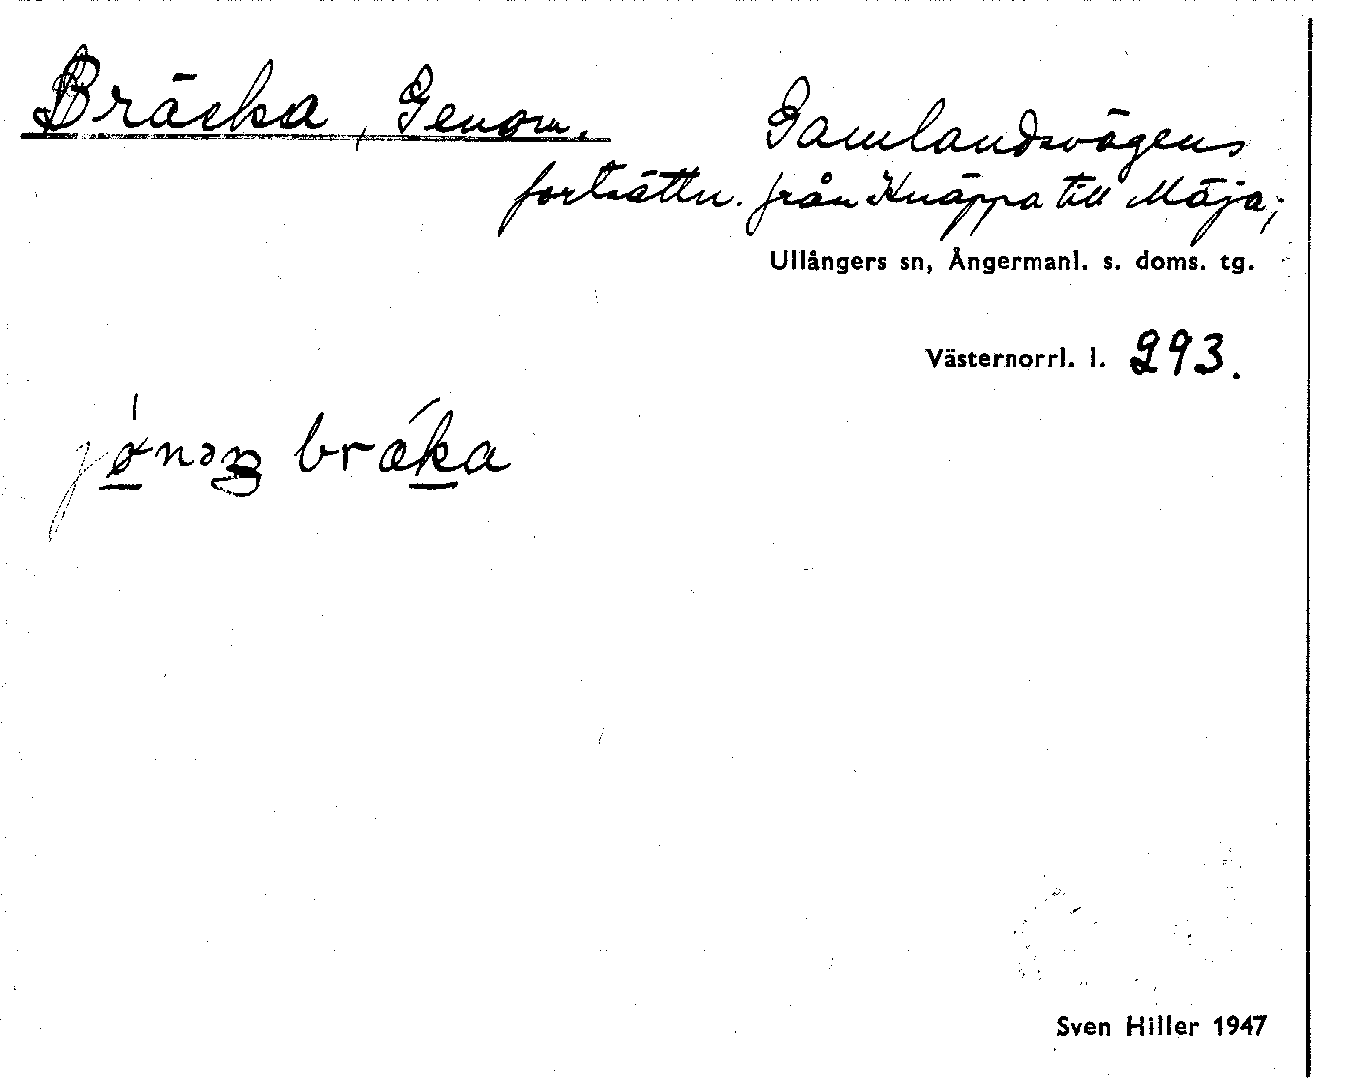 Bräcka, Genom. Gamlandsvägens
fortsättn. från Knäppa till Mäja;
Ullångers sn, Ångermanl. s. doms. tg.
Västernorrl. l. 293.
bræka
Sven Hiller 1947